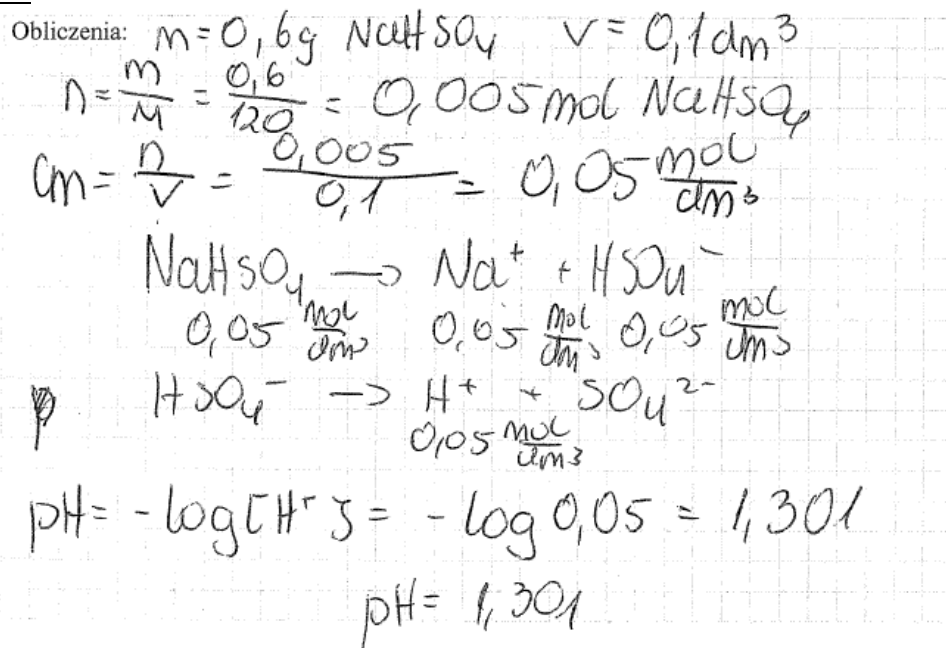 Obliczenia: m = 0,6g NaHSO₄ V = 0,1dm³
n = m/M = 0,6/120 = 0,005mol NaHSO₄
Cm = n/V = 0,005/0,1 = 0,05 mol/dm³
NaHSO₄ → Na⁺ + HSO₄⁻
0,05 mol/dm³ 0,05 mol/dm³ 0,05 mol/dm³
HSO₄⁻ → H⁺ + SO₄²⁻
0,05 mol/dm³
pH = -log[H⁺] = -log 0,05 = 1,301
pH = 1,301